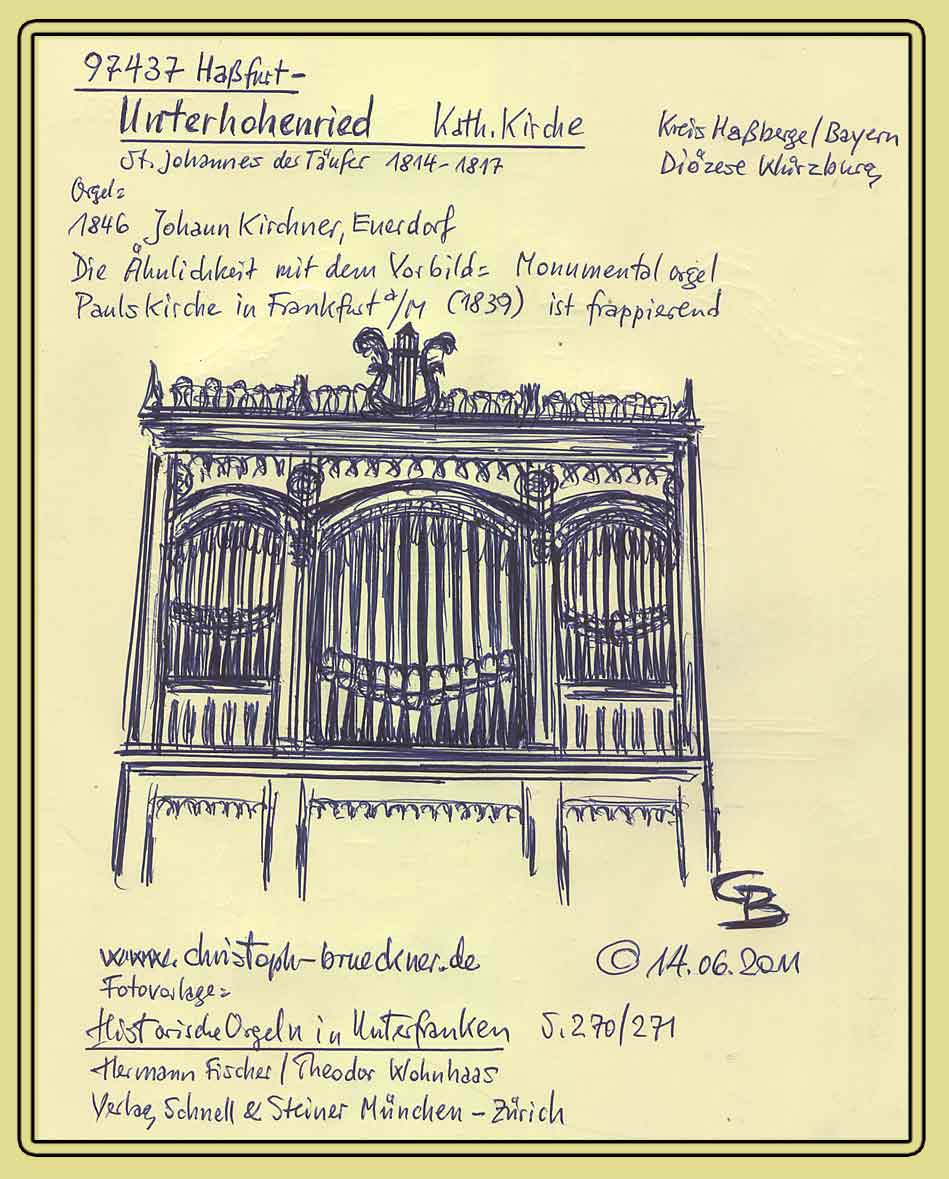 97437 Haßfurt-
Unterhohenried Kath. Kirche
Kreis Haßberge/Bayern
St. Johannes der Täufer 1814-1817
Diözese Würzburg
Orgel=
1846 Johann Kirchner, Euerdorf
Die Ähnlichkeit mit dem Vorbild= Monumentalorgel
Paulskirche in Frankfurt a/M (1839) ist frappierend
CB
www.christoph-brueckner.de
© 14.06.2011
Fotovorlage=
Historische Orgeln in Unterfranken S. 270/271
Hermann Fischer/Theodor Wohnhaas
Verlag Schnell & Steiner München - Zürich